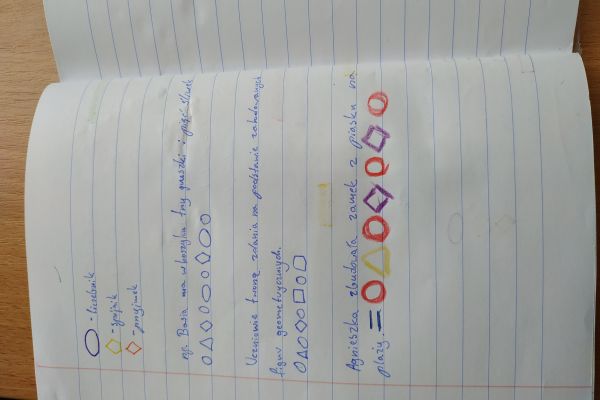 - liczebnik
- spójnik
- przyimek
np. Basia ma w koszyku trzy gruszki i pięć śliwek
Uczniowie tworzą zdania na podstawie zakodowanych
figur geometrycznych.
Agnieszka zbudowała zamek z piasku na
plaży.